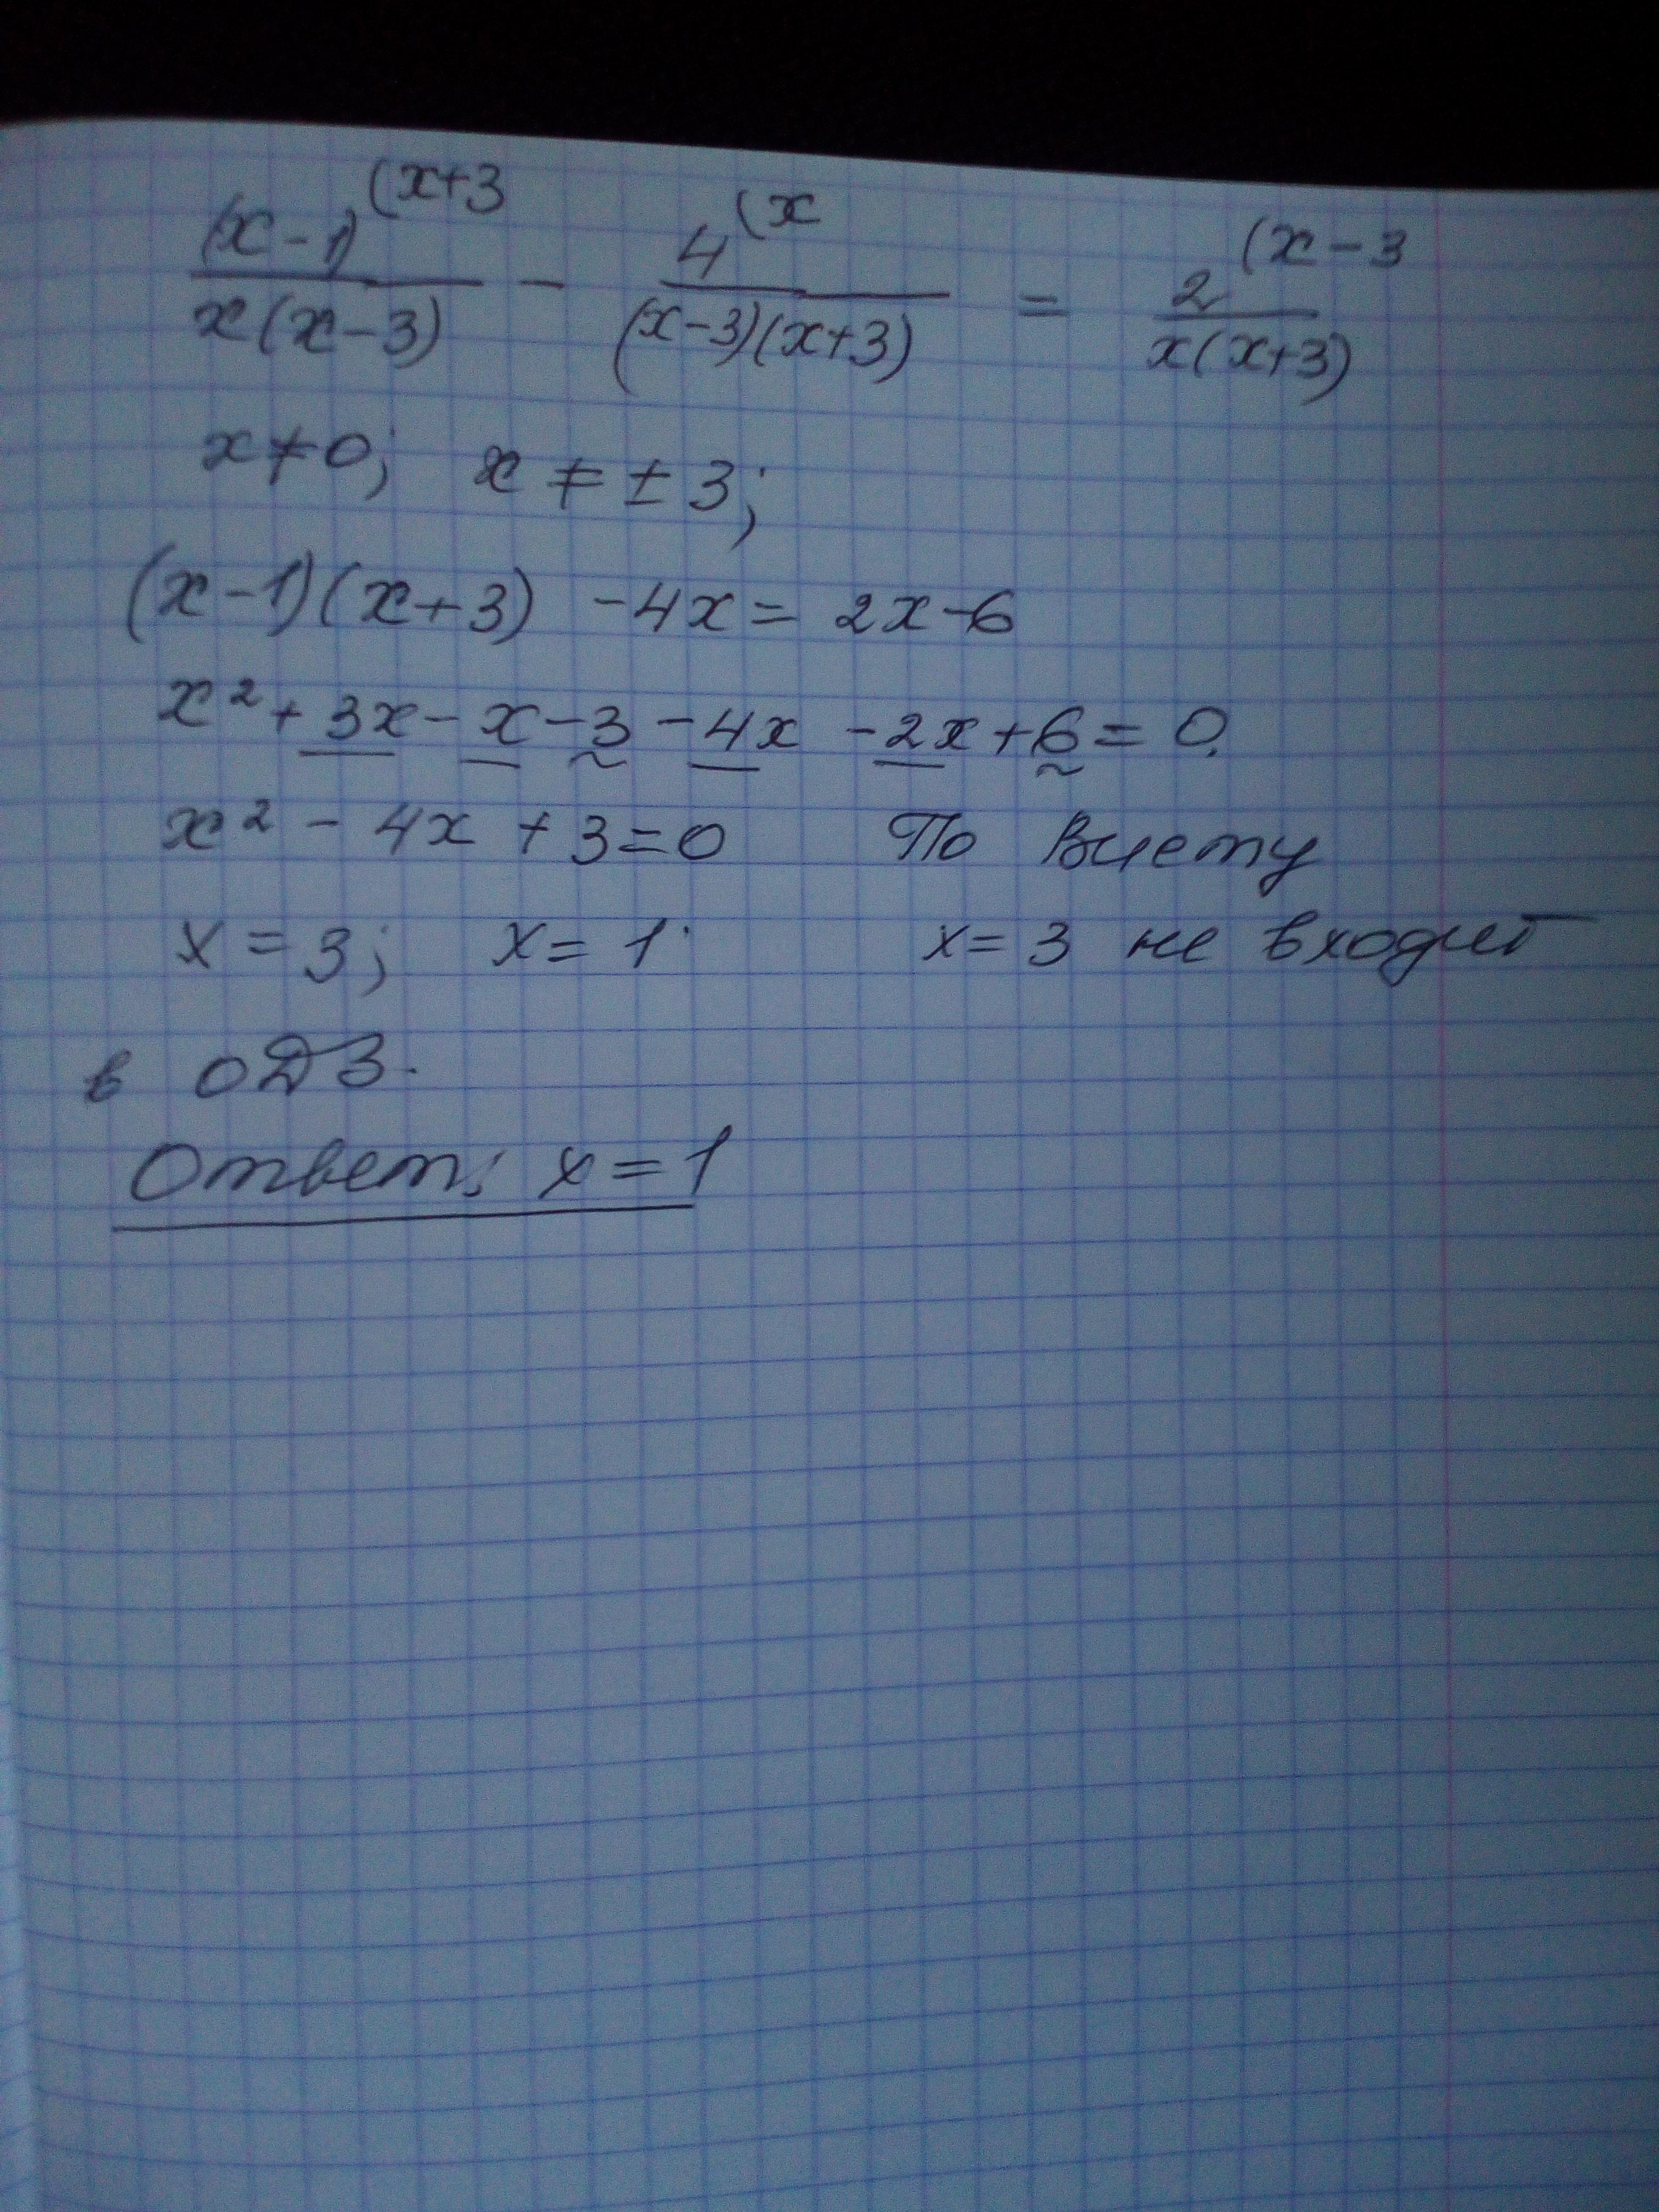 (x-1)^(x+3 / x(x-3) - 4^(x / (x-3)(x+3) = 2^(x-3 / x(x+3)
x≠0; x≠±3;
(x-1)(x+3) -4x= 2x-6
x²+3x-x-3-4x -2x+6=0.
x²-4x+3=0 По Виету
x=3; x=1. x=3 не входит
в ОДЗ.
Ответ: x=1